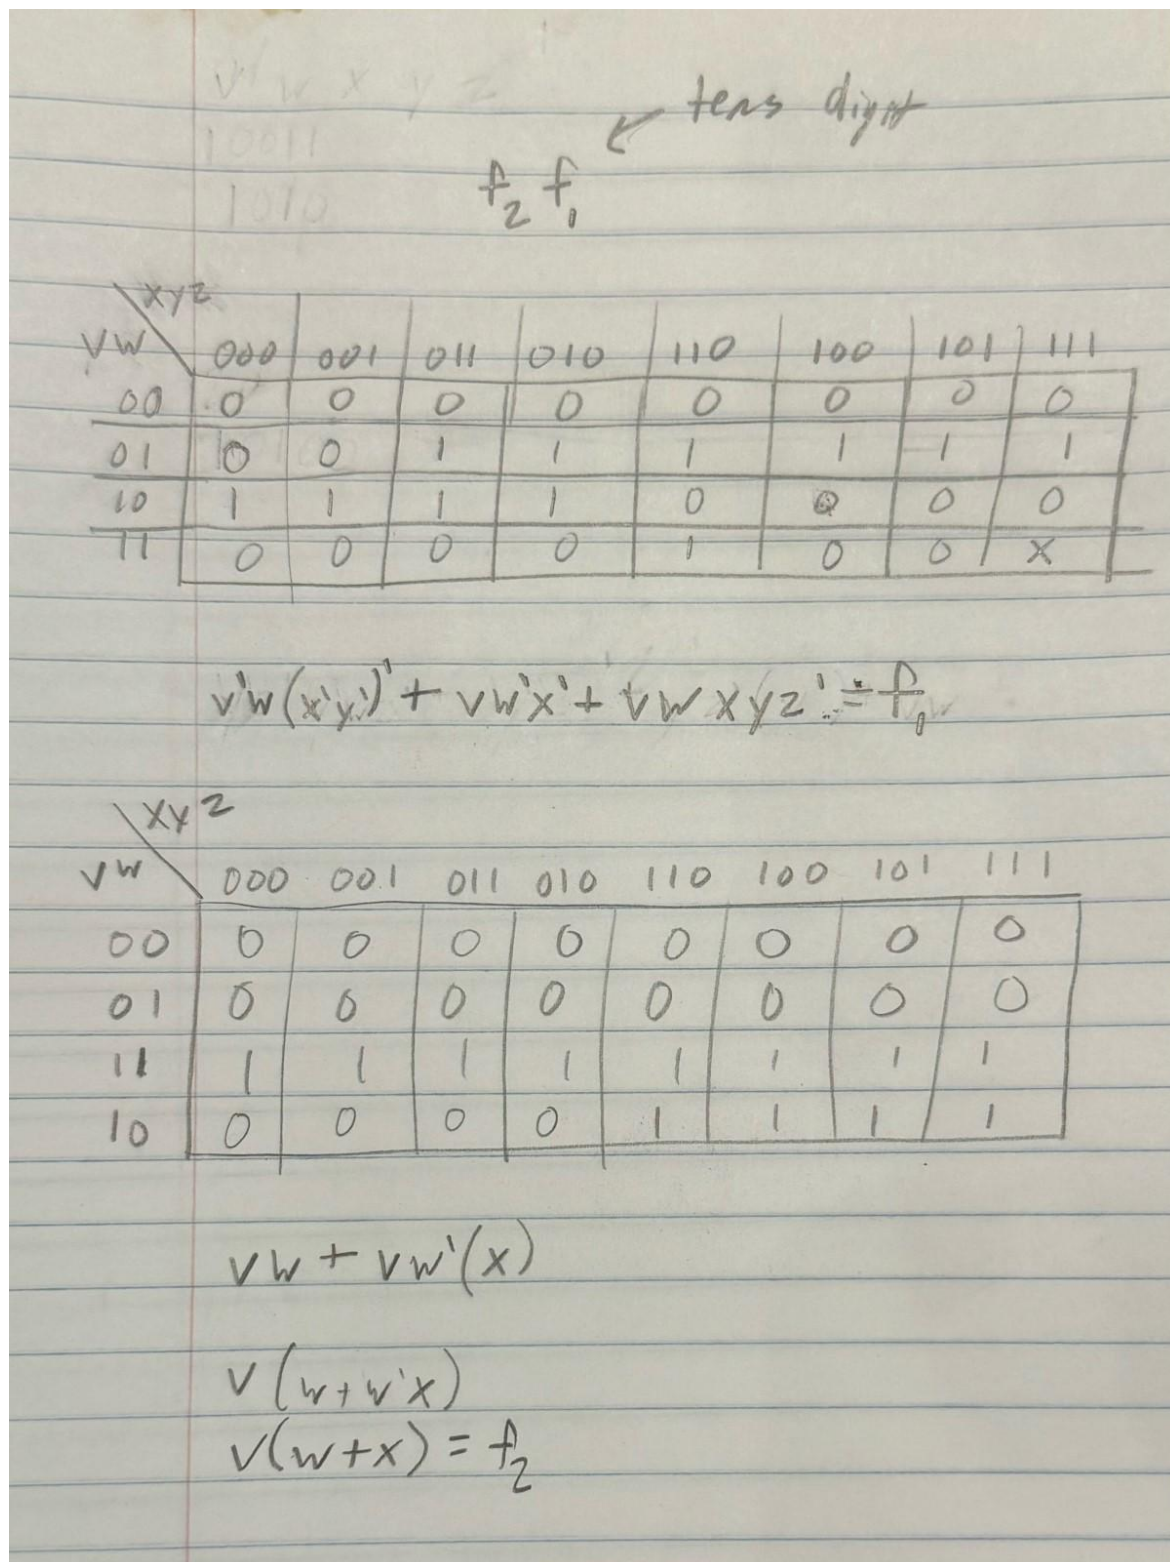 v w x y z
10011
1010
tens digit
f₂ f₁
xyz
vw 000 001 011 010 110 100 101 111
00 0 0 0 0 0 0 0 0
01 0 0 1 1 1 1 1 1
10 1 1 1 1 0 0 0 0
11 0 0 0 0 1 0 0 x
v'w(x'y')' + vw'x' + vwxyz' = f₁
xyz
vw 000 001 011 010 110 100 101 111
00 0 0 0 0 0 0 0 0
01 0 0 0 0 0 0 0 0
11 1 1 1 1 1 1 1 1
10 0 0 0 0 1 1 1 1
vw + vw'(x)
v(w+w'x)
v(w+x) = f₂